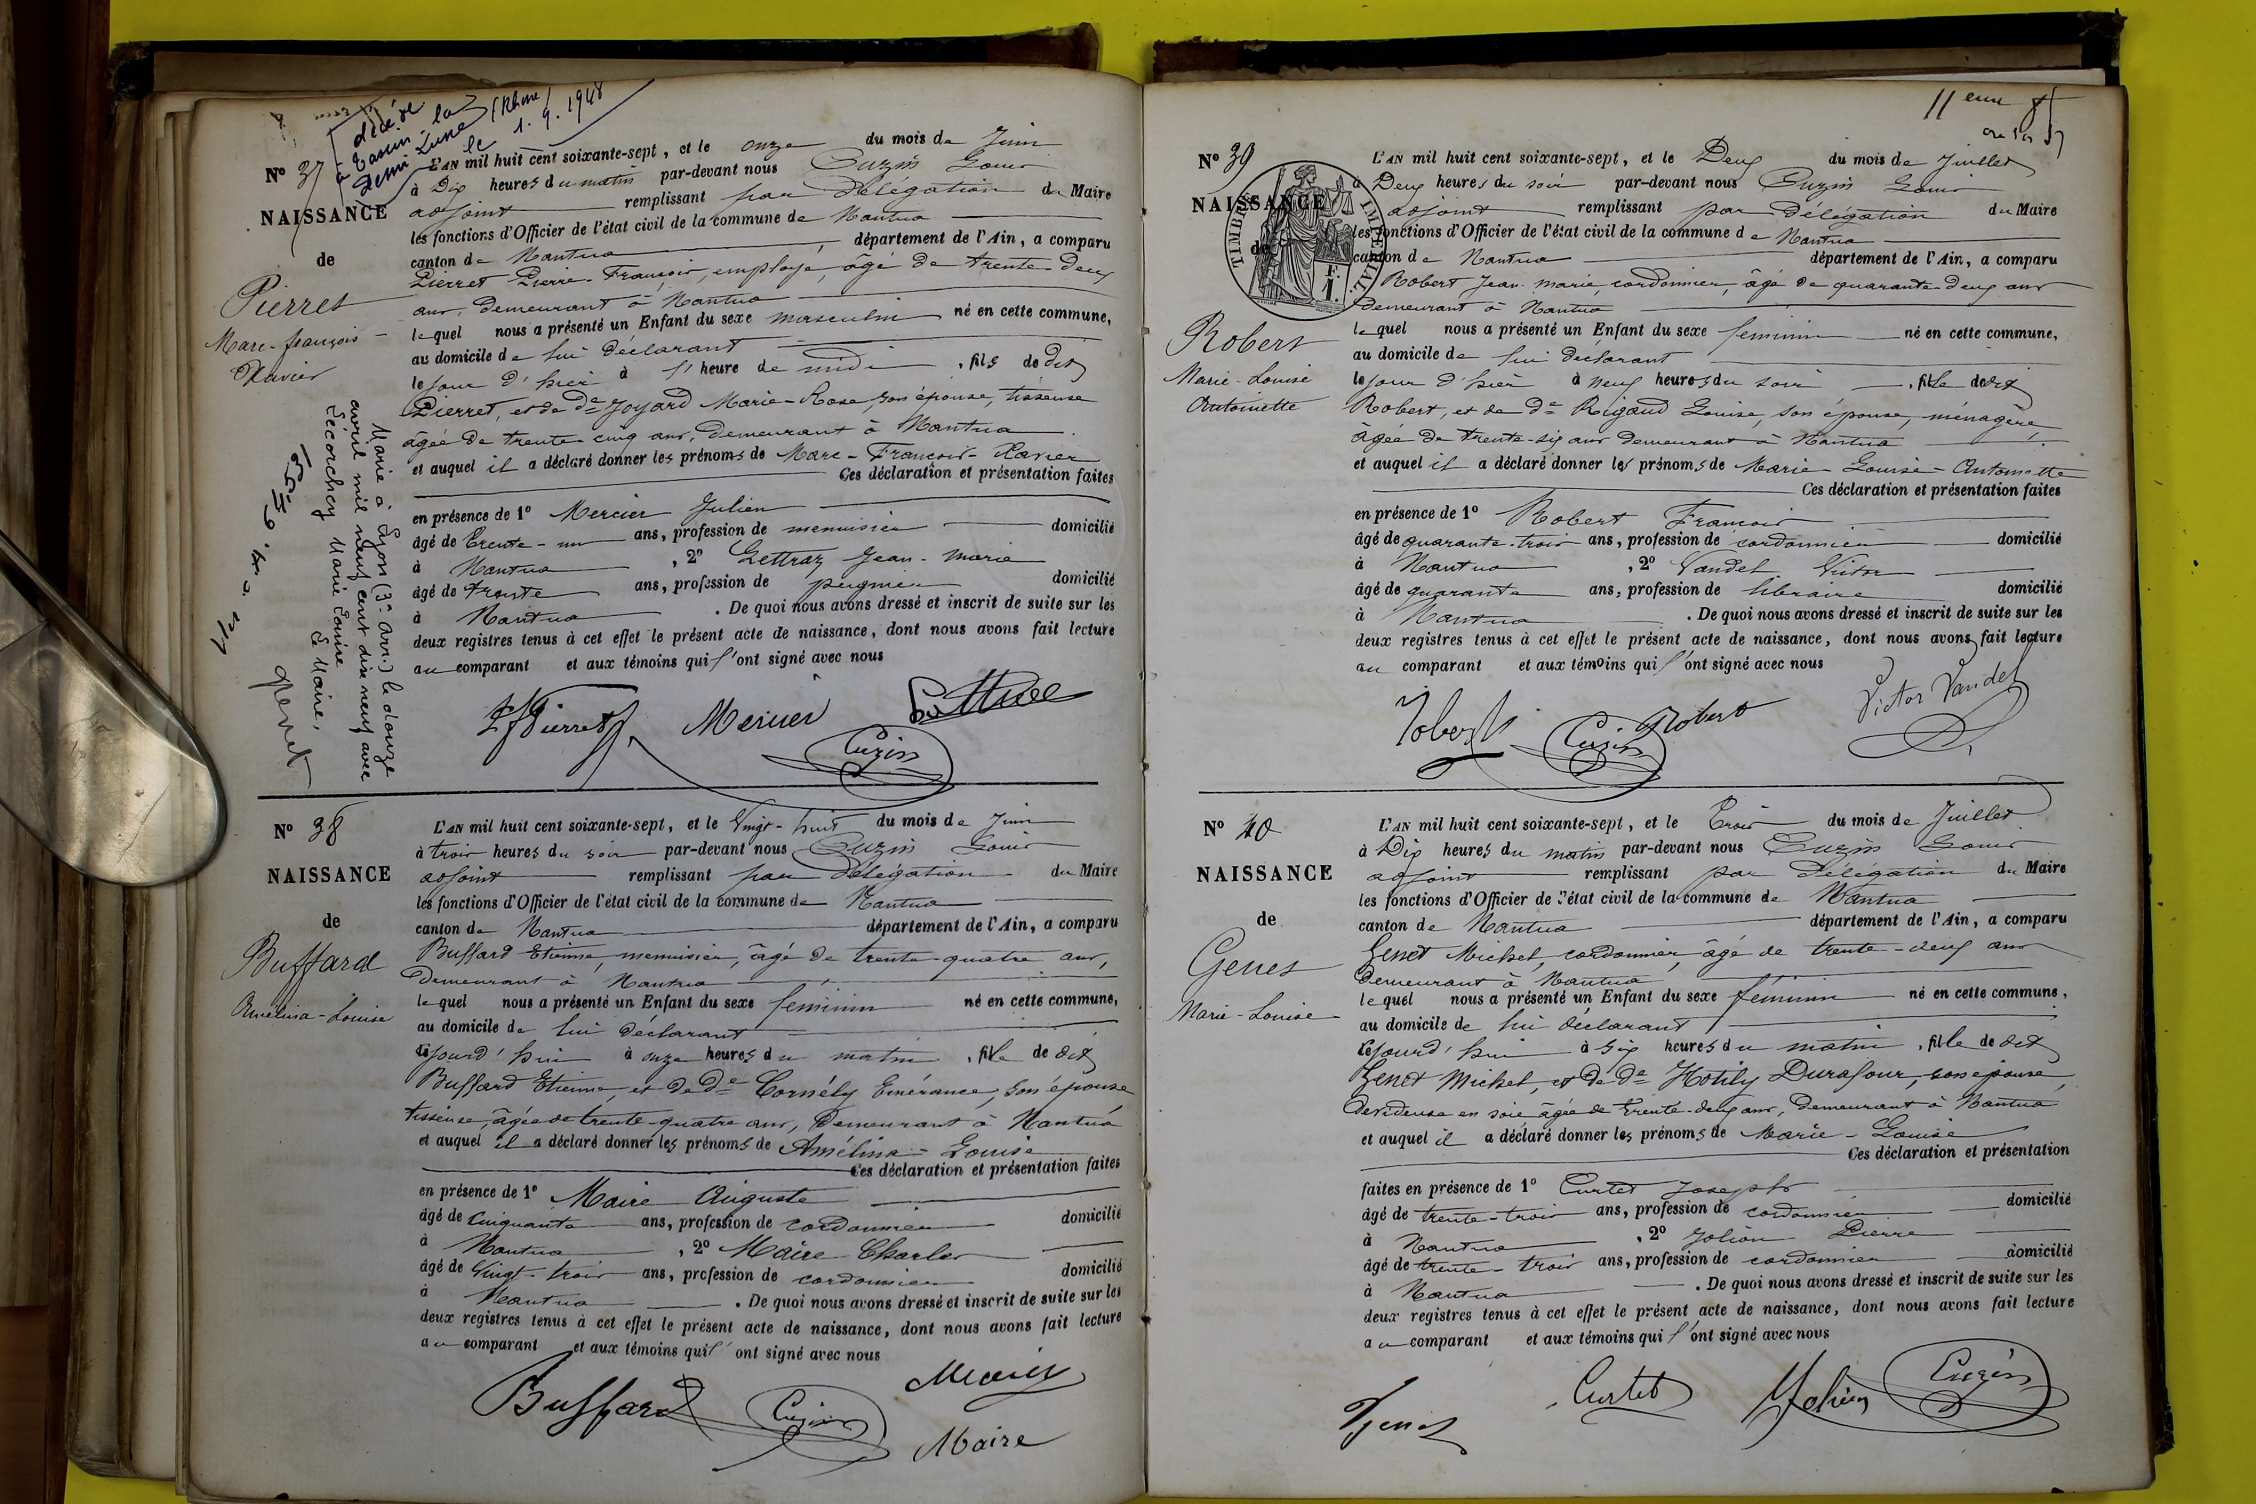 décédé
à Tassin-la
Demi Lune (Rhône)
le 1.9.1948
N° 37
NAISSANCE
de
Pierret
Marc-françois
Xavier
Marié à Lyon (3e arr.) le douze
avril mil neuf cent dix neuf avec
Lécorchey Marie Louise
Le Maire,
L'AN mil huit cent soixante-sept, et le onze du mois de Juin
à Dix heures du matin par-devant nous Cuzin Louis
adjoint remplissant par Délégation du Maire
les fonctions d'Officier de l'état civil de la commune de Nantua
canton de Nantua département de l'Ain, a comparu
Pierret Pierre-François, employé, âgé de trente-deux
ans, demeurant à Nantua
lequel nous a présenté un Enfant du sexe masculin né en cette commune,
au domicile de lui déclarant
le jour d'hier à l'heure de midi, fils de dit
Pierret, et de De Joyard Marie-Rose, son épouse, tisseuse
âgée de trente-cinq ans, demeurant à Nantua
et auquel il a déclaré donner les prénoms de Marc-François-Xavier
Ces déclaration et présentation faites
en présence de 1° Mercier Julien
âgé de Trente-un ans, profession de menuisier domicilié
à Nantua, 2° Lettraz Jean-Marie
âgé de trente ans, profession de peignier domicilié
à Nantua. De quoi nous avons dressé et inscrit de suite sur les
deux registres tenus à cet effet le présent acte de naissance, dont nous avons fait lecture
au comparant et aux témoins qui l'ont signé avec nous
Pierret Mercier
Cuzin
N° 38
NAISSANCE
de
Buffard
Amélina-Louise
L'AN mil huit cent soixante-sept, et le Vingt-huit du mois de Juin
à trois heures du soir par-devant nous Cuzin Louis
adjoint remplissant par Délégation du Maire
les fonctions d'Officier de l'état civil de la commune de Nantua
canton de Nantua département de l'Ain, a comparu
Buffard Etienne, menuisier, âgé de trente-quatre ans,
demeurant à Nantua
lequel nous a présenté un Enfant du sexe féminin né en cette commune,
au domicile de lui déclarant
cejourd'hui à onze heures du matin, fille de dit
Buffard Etienne, et de De Cornély Emérance, son épouse
tisseuse, âgée de trente-quatre ans, demeurant à Nantua
et auquel il a déclaré donner les prénoms de Amélina-Louise
Ces déclaration et présentation faites
en présence de 1° Maire Auguste
âgé de Cinquante ans, profession de cordonnier domicilié
à Nantua, 2° Maire Charles
âgé de Vingt-trois ans, profession de cordonnier domicilié
à Nantua. De quoi nous avons dressé et inscrit de suite sur les
deux registres tenus à cet effet le présent acte de naissance, dont nous avons fait lecture
au comparant et aux témoins qui l'ont signé avec nous
Buffard Cuzin
Maire
11
N° 39
NAISSANCE
de
TIMBRE IMPERIAL
F.
1.
Robert
Marie-Louise
Antoinette
L'AN mil huit cent soixante-sept, et le Deux du mois de Juillet
à Deux heures du soir par-devant nous Cuzin Louis
adjoint remplissant par Délégation du Maire
les fonctions d'Officier de l'état civil de la commune de Nantua
canton de Nantua département de l'Ain, a comparu
Robert Jean-marie, cordonnier, âgé de quarante-deux ans
demeurant à Nantua
lequel nous a présenté un Enfant du sexe féminin né en cette commune,
au domicile de lui déclarant
le jour d'hier à neuf heures du soir, fille dudit
Robert, et de De Rigaud Louise, son épouse, ménagère,
âgée de trente-six ans demeurant à Nantua
et auquel il a déclaré donner les prénoms de Marie-Louise-Antoinette
Ces déclaration et présentation faites
en présence de 1° Robert François
âgé de quarante-trois ans, profession de cordonnier domicilié
à Nantua, 2° Vandel Victor
âgé de quarante ans, profession de libraire domicilié
à Nantua. De quoi nous avons dressé et inscrit de suite sur les
deux registres tenus à cet effet le présent acte de naissance, dont nous avons fait lecture
au comparant et aux témoins qui l'ont signé avec nous
Robert Cuzin Robert Victor Vandel
N° 40
NAISSANCE
de
Genet
Marie-Louise
L'AN mil huit cent soixante-sept, et le Trois du mois de Juillet
à Dix heures du matin par-devant nous Cuzin Louis
adjoint remplissant par Délégation du Maire
les fonctions d'Officier de l'état civil de la commune de Nantua
canton de Nantua département de l'Ain, a comparu
Genet Michel, cordonnier, âgé de trente-deux ans
demeurant à Nantua
lequel nous a présenté un Enfant du sexe féminin né en cette commune,
au domicile de lui déclarant
cejourd'hui à six heures du matin, fille de dit
Genet Michel, et de De Hotily Durafour, son épouse,
devideuse en soie âgée de trente-deux ans, demeurant à Nantua
et auquel il a déclaré donner les prénoms de Marie-Louise
Ces déclaration et présentation
faites en présence de 1° Curtet Joseph
âgé de trente-trois ans, profession de cordonnier domicilié
à Nantua, 2° Jolion Pierre
âgé de trente-trois ans, profession de cordonnier domicilié
à Nantua. De quoi nous avons dressé et inscrit de suite sur les
deux registres tenus à cet effet le présent acte de naissance, dont nous avons fait lecture
au comparant et aux témoins qui l'ont signé avec nous
Genet Curtet Cuzin